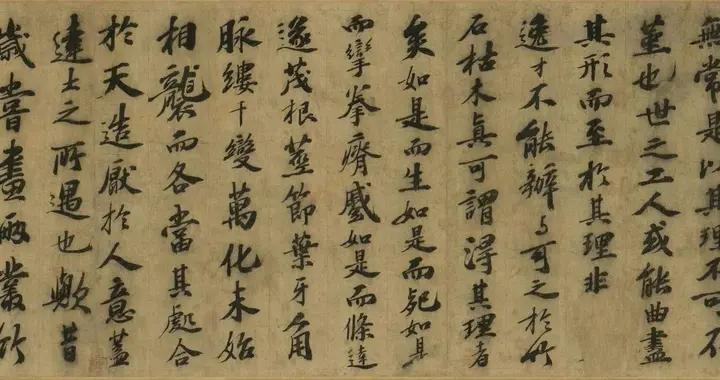 無常是以其理不可不
堇也世之工人或能曲盡
其形而至於其理非
逸才不能辨与可之於竹
石枯木眞可謂得其理者
矣如是而生如是而死如是
而攣拳瘠蹙如是而條達
遂茂根莖節葉牙角
脉縷千變萬化未始
相襲而各當其處合
於天造厭於人意蓋
達士之所遇也歟昔
歲嘗畫兩叢竹